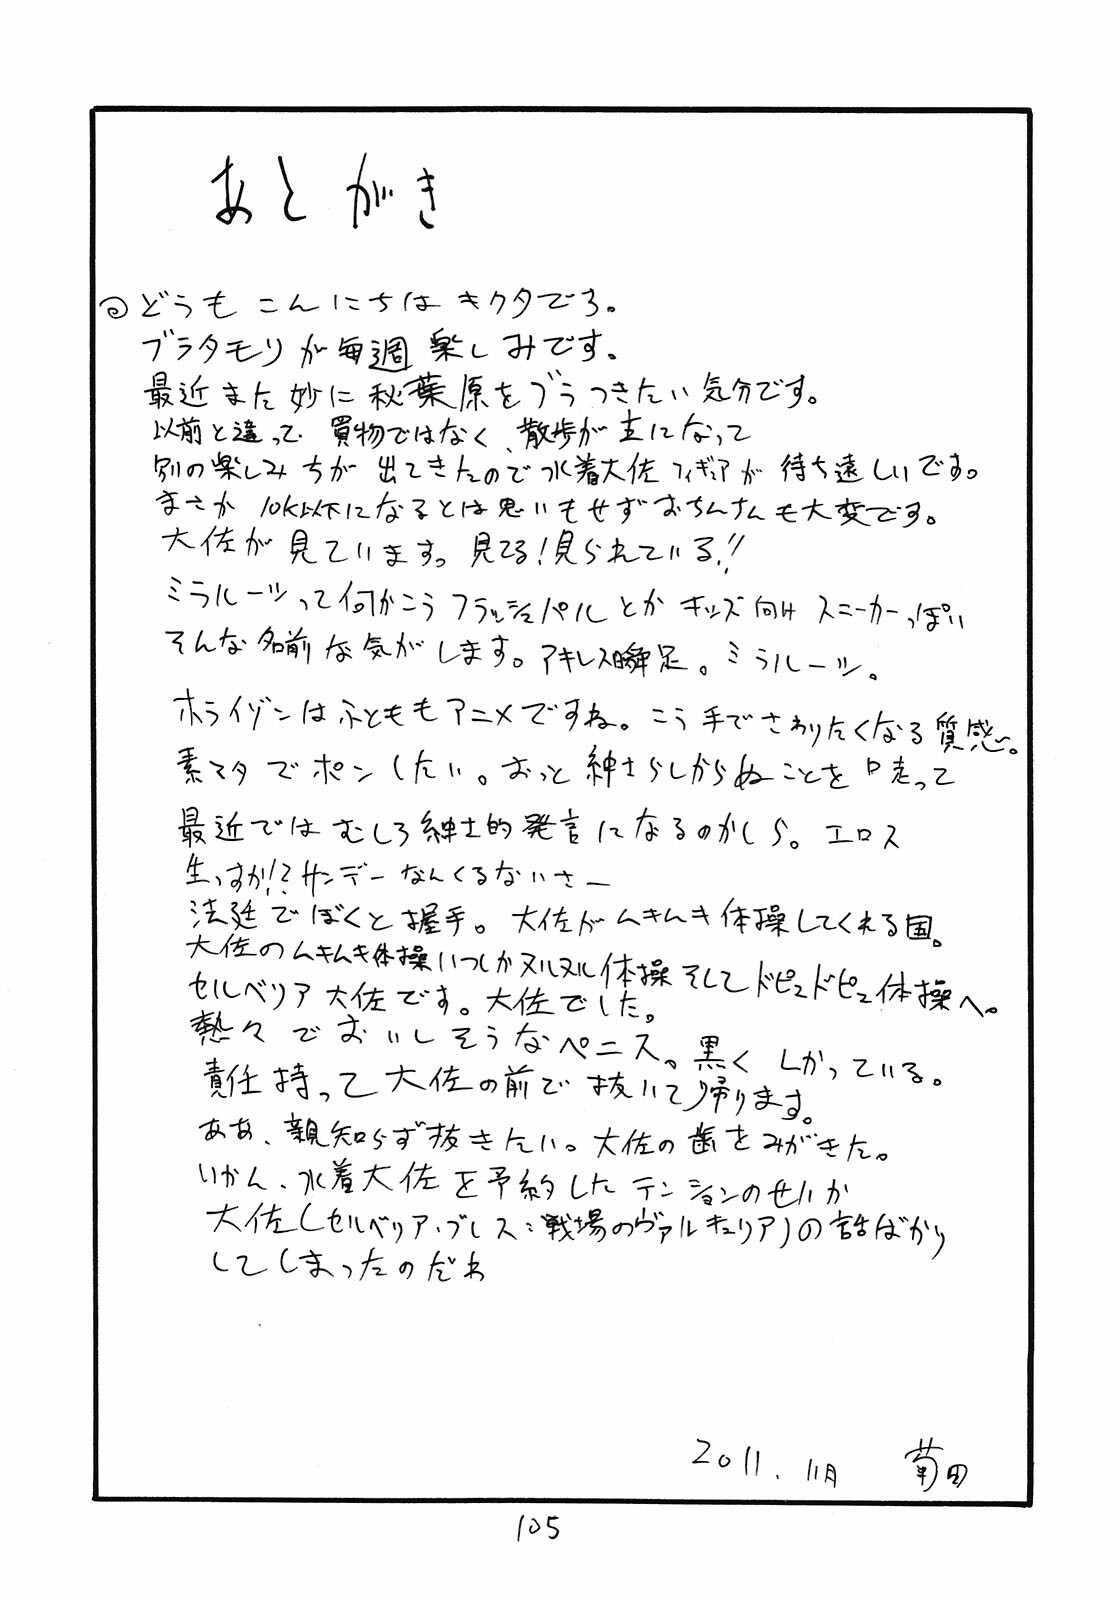 あとがき
どうもこんにちはキクタでする。
ブラタモリが毎週楽しみです。
最近また妙に秋葉原をブラつきたい気分です。
以前と違って、買物ではなく、散歩が主になって
別の楽しみちが出てきたので水着大佐フィギュアが待ち遠しいです。
まさか10K以下になるとは思いもせずおちんちんも大変です。
大佐が見ています。見てる!見られている!!
ミラルーツって何かこうフラッシュパルとかキッズ向けスニーカーっぽい
そんな名前な気がします。アキレス瞬足。ミラルーツ。
ホライゾンはふとももアニメですね。こう手でさわりたくなる質感。
素マタでポンしたい。おっと紳士らしからぬことを口走って
最近ではむしろ紳士的発言になるのかしら。エロス
生っすか!?サンデーなんくるないさー
法廷でぼくと握手。大佐がムキムキ体操してくれる国。
大佐のムキムキ体操いつしかヌルヌル体操そしてドピュドピュ体操へ。
セルベリア大佐です。大佐でした。
熱々でおいしそうなペニス。黒くしかっている。
責任持って大佐の前で抜いて帰ります。
ああ、親知らず抜きたい。大佐の歯をみがきた。
いかん、水着大佐を予約したテンションのせいか
大佐(セルベリア・ブレス:戦場のヴァルキュリア)の話ばかり
してしまったのだわ
2011.11月 菊田
105